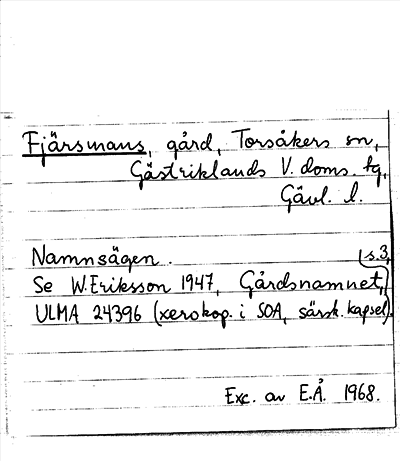 Fjärsmans, gård, Torsåkers sn,
Gästriklands V. doms. tg,
Gävl. l.
Namnsägen.
Se W. Eriksson 1947, Gårdsnamnet, s. 3,
ULMA 24396 (xerokop. i SOA, särsk. kapsel).
Exc. av E.Å. 1968.